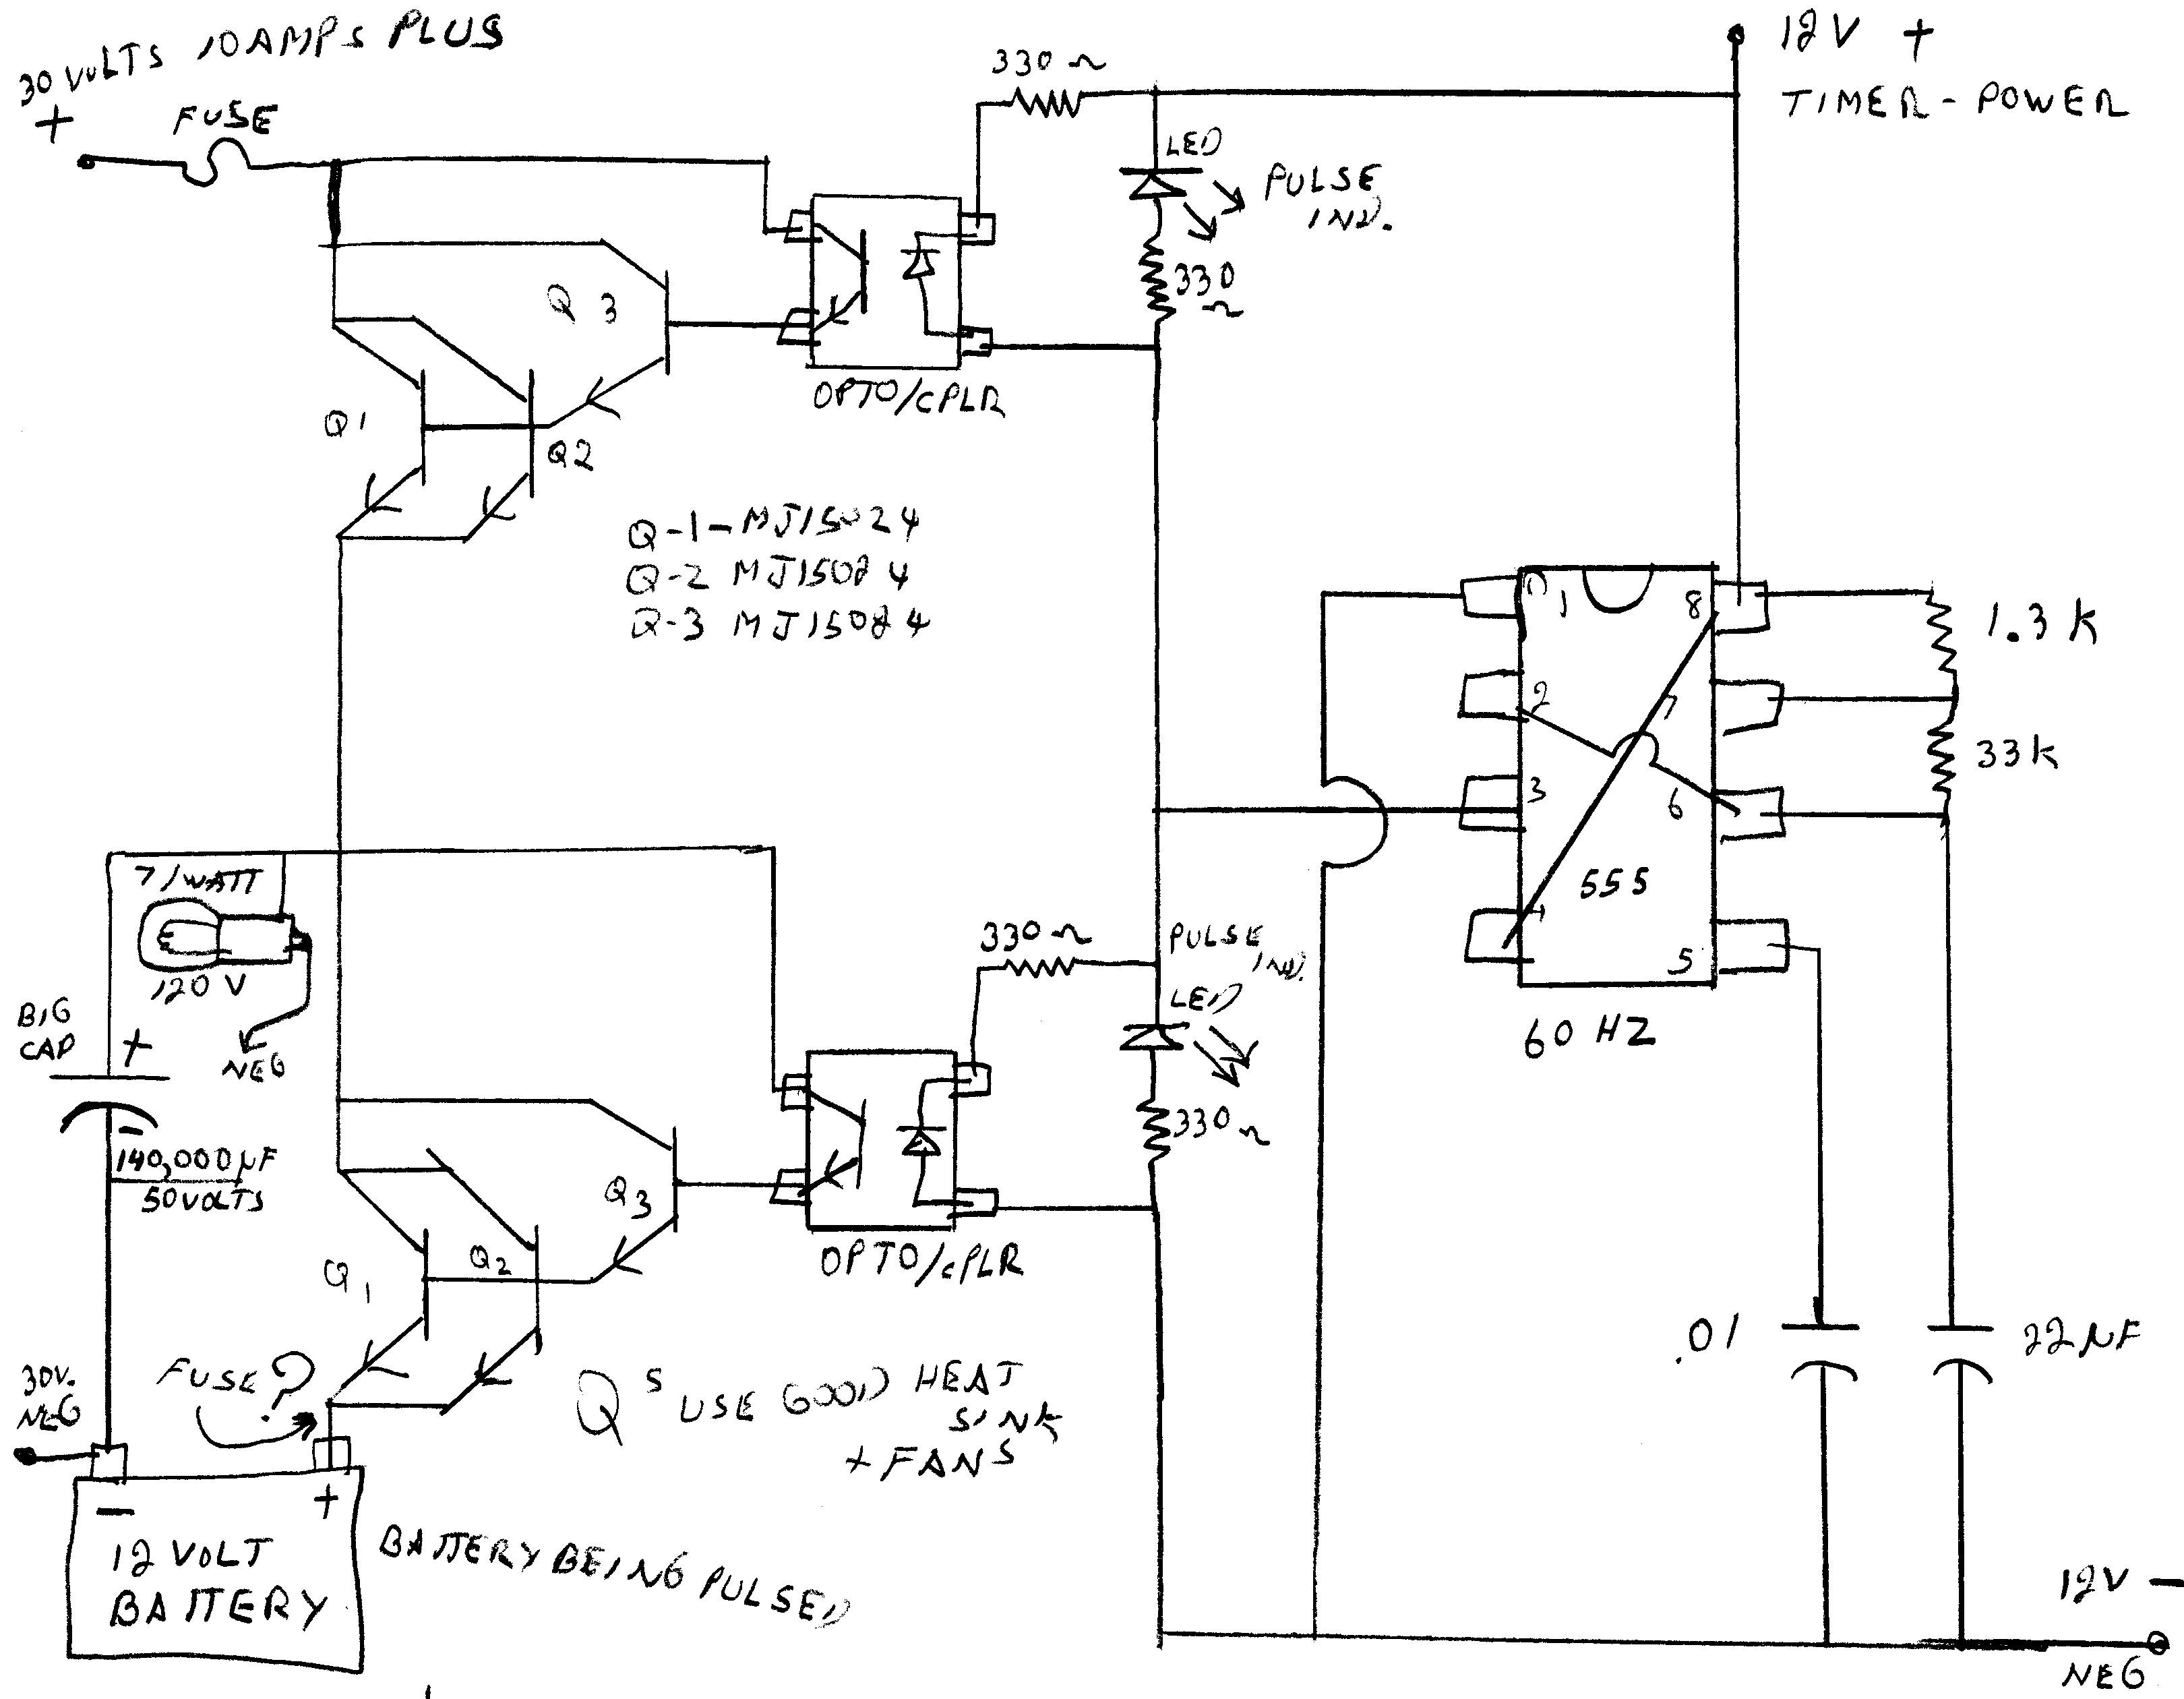 30 VOLTS 10 AMPS PLUS
+
FUSE
330 Ω
12V +
TIMER - POWER
LED
PULSE
IND.
330
Ω
OPTO/CPLR
Q 3
Q1
Q2
Q-1-MJ15024
Q-2 MJ15024
Q-3 MJ15024
1
8
2
7
3
6
4
555
5
60 HZ
1.3K
33K
71WATT
120 V
NEG
BIG
CAP
+
-
140,000µF
50VOLTS
330 Ω
PULSE
IND.
LED
330 Ω
OPTO/CPLR
Q3
Q2
Q1
FUSE?
QS USE GOOD HEAT
SINK
+ FANS
.01
22µF
30V.
NEG
- +
12 VOLT
BATTERY
BATTERY BEING PULSED
12V -
NEG